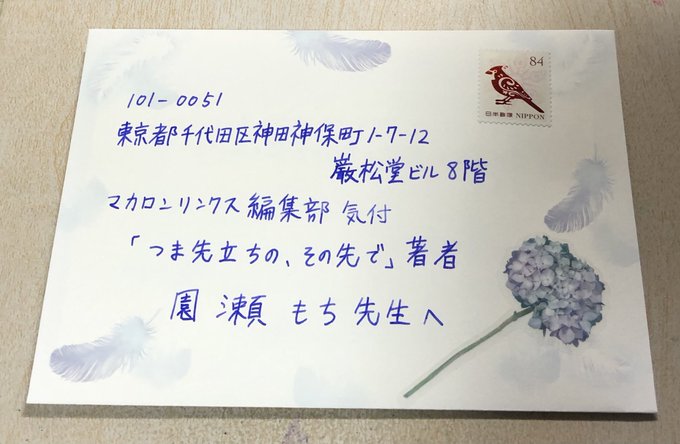 84
日本郵便 NIPPON
101-0051
東京都千代田区神田神保町1-7-12
巌松堂ビル8階
マカロンリンクス編集部 気付
「つま先立ちの、その先で」著者
園瀬もち先生へ